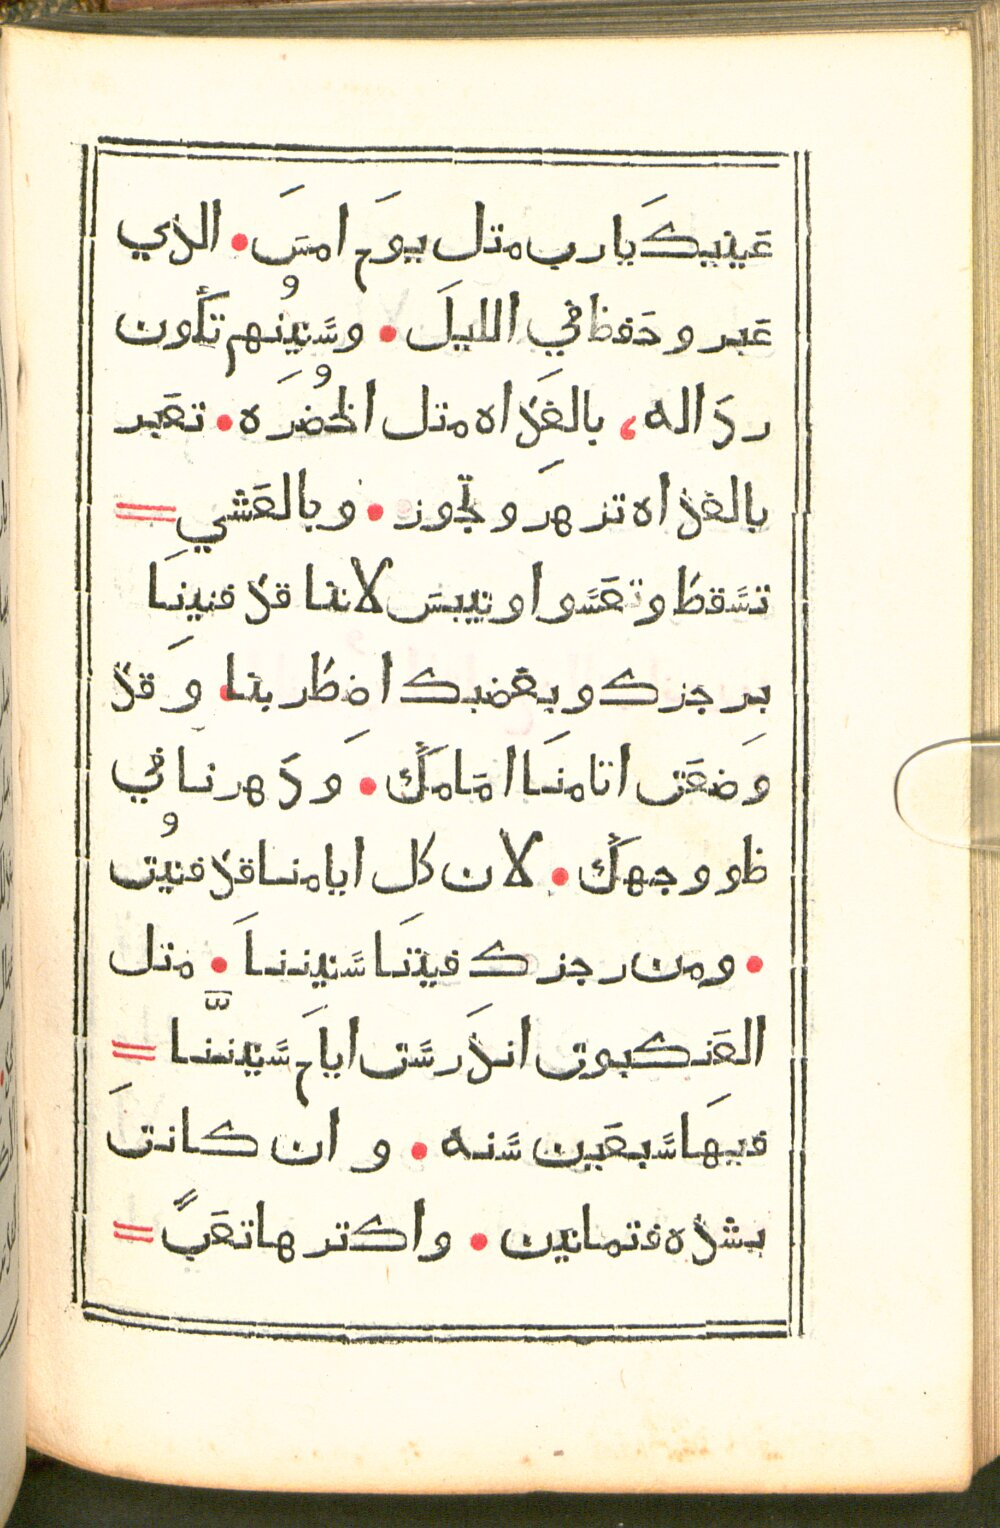 عينيك يا رب متل يوم امس • الذي
عبر وحفظ في الليل • وسنينهم تكون
رداله ، بالغداه متل الخضره • تعبر
بالغداه تزهر وتجوز • وبالعشي
تسقط وتعسوا وتيبس لاننا قد فنينا
برجزك وبغضبك اضطربنا • وقد
وضعت اتامنا امامك • ودهرنا في
ضو وجهك • لان كل ايامنا قد فنيت
• ومن رجزك فنيتا سنيننا • متل
العنكبوت اندرست ايام سنيننا
فيها سبعين سنه • وان كانت
بشده فتمانين • واكترها تعب